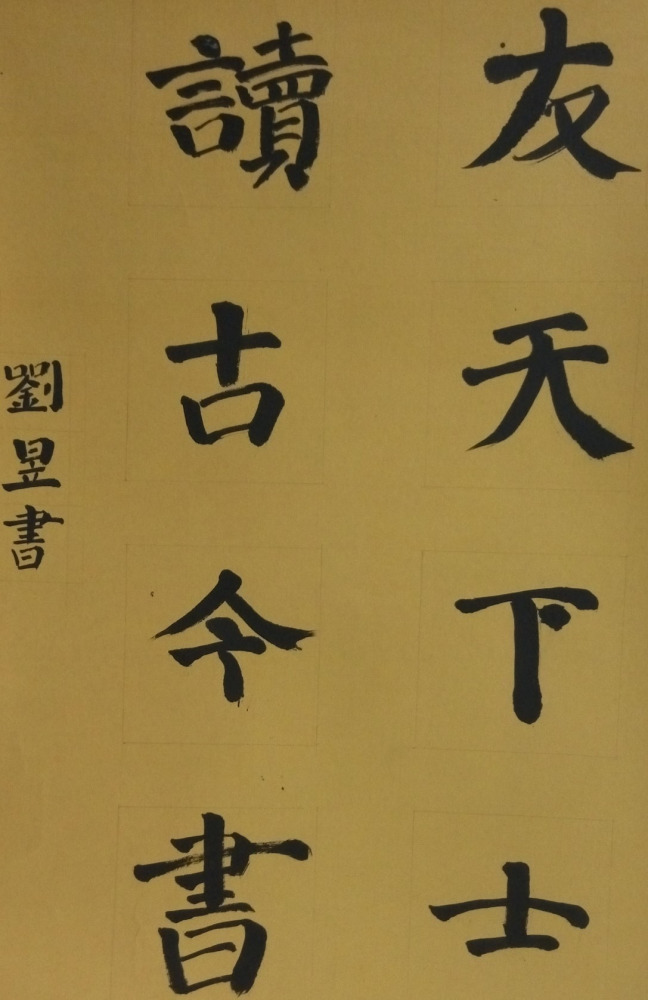 友天下士
讀古今書
劉昱書